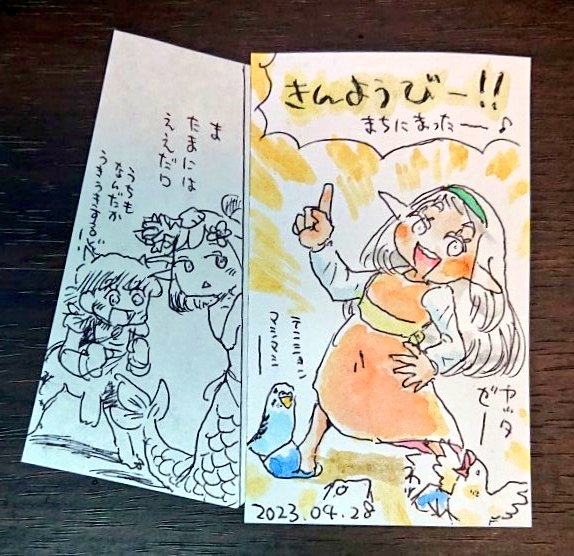 きんようびー!!
まちにまったー♪
ヤッタ
ぜー
2023.04.28
ま
たまには
ええだろ
うちも
なんだか
うきうきするぞ!